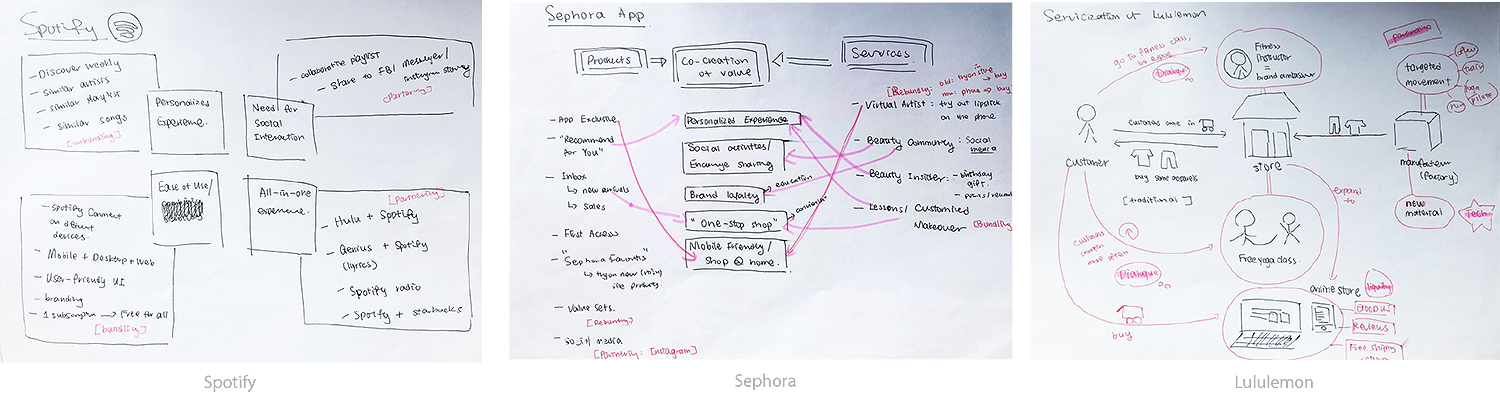 Spotify
- Discover weekly
- similar artists
- similar playlist
- similar songs
[unbundling]
Personalized
Experience.
Need for
Social
Interaction
- collaborative playlist
- share to FB messenger/
instagram story
[Partnering]
Ease of Use/
All-in-one
experience.
- Spotify Connect
on different
devices.
- Mobile + Desktop + Web
- User-friendly UI
- branding
- 1 subscription → Free for all
[bundling]
[Partnering]
- Hulu + Spotify
- Genius + Spotify
(lyrics)
- Spotify radio
- Spotify + starbucks
Spotify
Sephora App
Products
Co-creation
of value
Services
- App Exclusive
- "Recommend
for You"
- Inbox
↳ new arrivals
↳ sales
- First Access
- "Sephora Favorites"
↳ try on new
products.
- Value Sets.
- social media
[Partnering: Instagram]
Personalized Experience
Social activities/
Encourage sharing
Brand loyalty
→ education
"One-stop shop"
Mobile Friendly/
Shop @ home.
old: try on in store
→ buy
now: phone → buy
- Virtual Artist: try out lipstick
on the phone
- Beauty Community: social
media
- Beauty Insider: - birthday
gift.
- Lessons/Customized
Makeover
[Bundling]
Sephora
Servicization of Lululemon
go to fitness class,
Dialogue
Fitness
Instructor
=
brand ambassador
targeted
movement
yoga
run
customer
customers come in
buy some apparels
[traditional]
store
manufacture
(factory)
new
material
Tech
expand
to
customers
more often
Dialogue
Free yoga class.
buy
online store
Good UI
Reviews
Free shipping
Lululemon